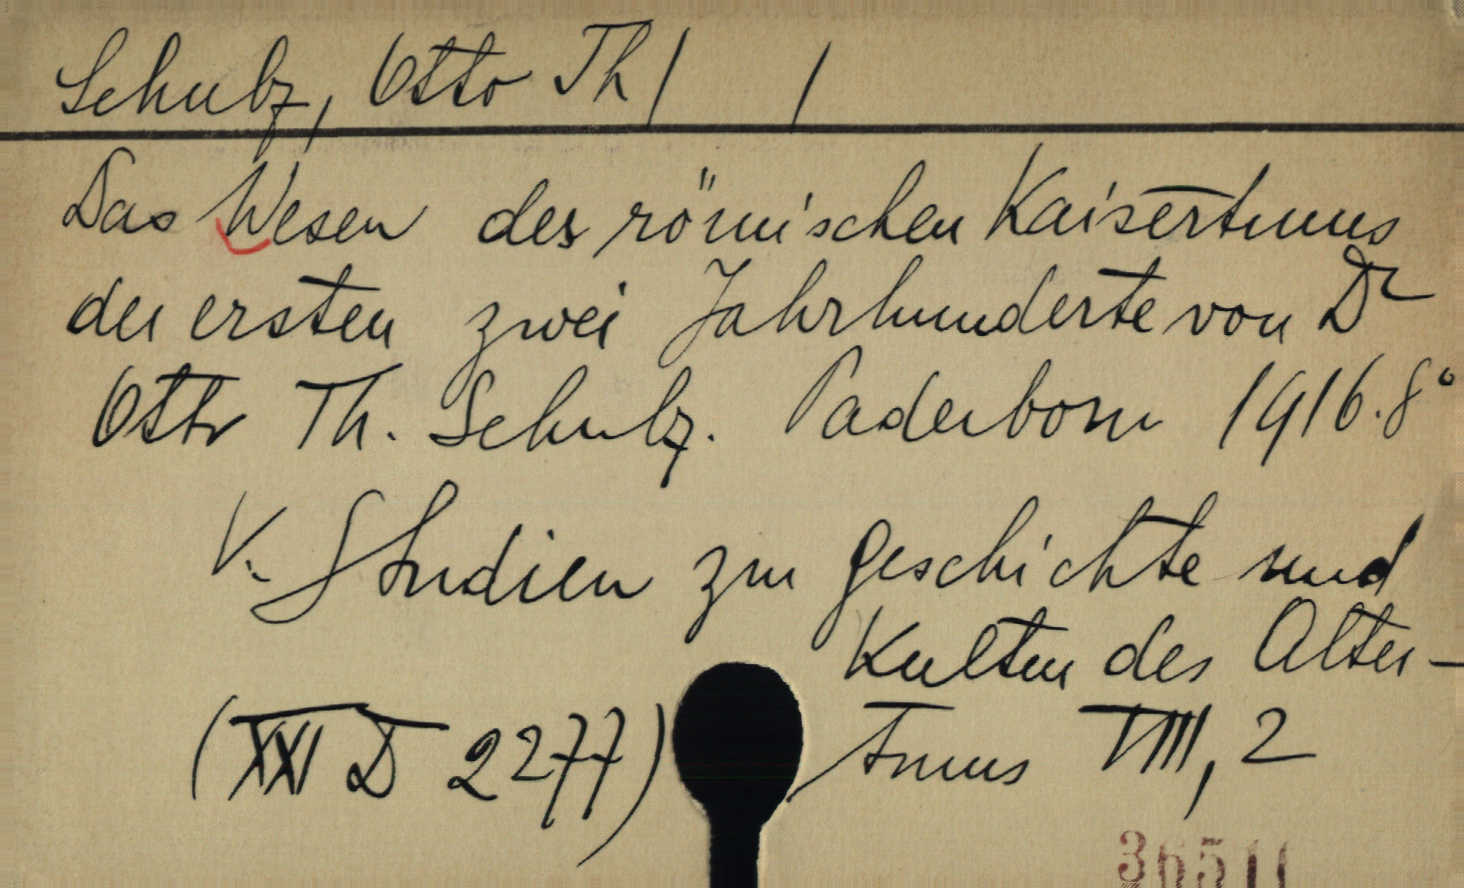 Schulz, Otto Th / /
Das Wesen des römischen Kaisertums
der ersten zwei Jahrhunderte von Dr
Otto Th. Schulz. Paderborn 1916. 8°
V. Studien zur Geschichte und
Kultur des Alter-
(XXI D 2277) tums VIII, 2
36511